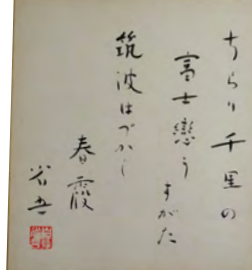 ちらり千里の
富士戀う
すがた
筑波はづかし
春霞